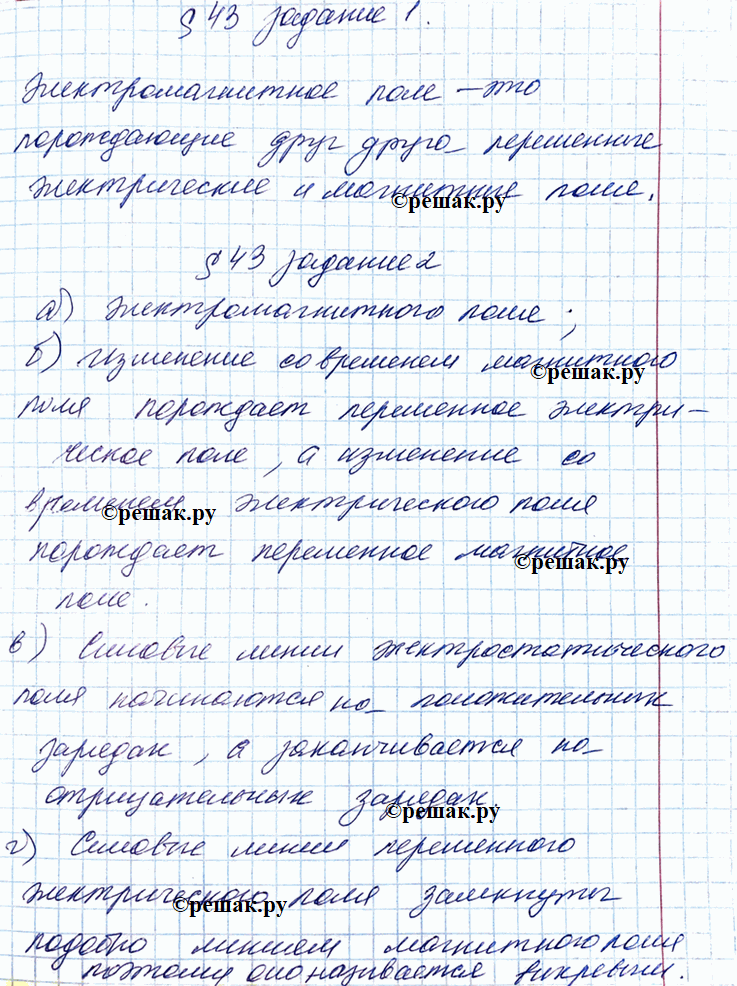 § 43 задание 1.
Электромагнитное поле – это
порождающие друг друга переменные
электрические и магнитные поля.
©решак.ру
§ 43 задание 2
а) электромагнитного поля ;
б) Изменение со временем магнитного
©решак.ру
поля порождает переменное электри-
ческое поле , а изменение со
временем электрического поля
©решак.ру
порождает переменное магнитное
©решак.ру
поле.
в) Силовые линии электростатического
поля начинаются на положительных
зарядах , а заканчивается на
отрицательных зарядах.
©решак.ру
г) Силовые линии переменного
электрического поля замкнуты
©решак.ру
подобно линиям магнитного поля
поэтому оно называется вихревым.